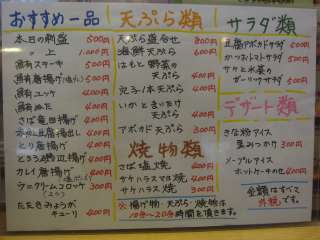 おすすめ一品
本日の刺盛 500円
〃 上 1,000円
鮪ステーキ 500円
鮪唐揚げ 500円
鮪ユッケ 400円
鮪ぬた 400円
さば竜田揚げ 400円
揚出し 400円
とり唐揚げ 400円
とろろ磯辺揚げ 400円
カレイ唐揚げ 400円
クリームコロッケ 300円
たたきみょうが
キューリ 400円
天ぷら類
天ぷら盛合せ 800円
海鮮天ぷら 600円
はもと野菜の
天ぷら 400円
穴子1本天ぷら 400円
いかときすの
天ぷら 400円
アボカド天ぷら 300円
焼物類
さば塩焼 400円
サケハラスマヨ焼 400円
サケハラス焼 300円
※揚げ物・天ぷら・焼物は
10分~20分時間を頂きます。
サラダ類
豆腐アボカドサラダ 500円
かつおトマトサラダ 500円
サケと水菜の
ガーリックサラダ 500円
デザート類
きな粉アイス
黒みつかけ 300円
メープルアイス
ホットケーキのせ 400円
金額はすべて
外税です。